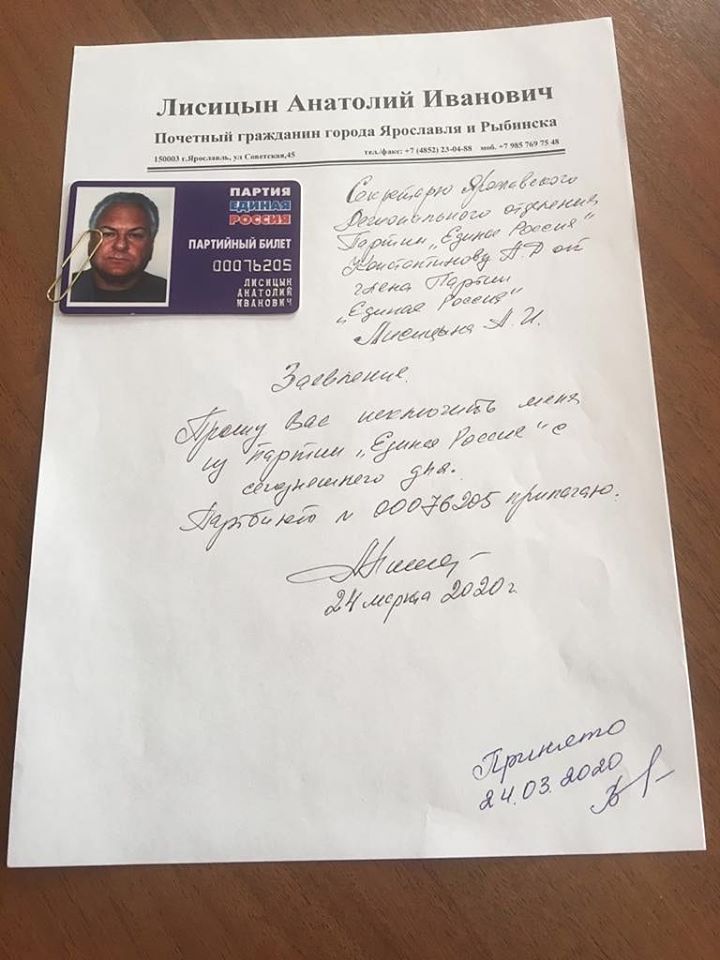 Лисицын Анатолий Иванович
Почетный гражданин города Ярославля и Рыбинска
150003 г.Ярославль, ул Советская,45 тел./факс: +7 (4852) 23-04-88 моб. +7 985 769 75 48
ПАРТИЯ
ЕДИНАЯ
РОССИЯ
ПАРТИЙНЫЙ БИЛЕТ
00076205
ЛИСИЦЫН
АНАТОЛИЙ
ИВАНОВИЧ
Секретарю Ярославского
Регионального отделения
Партии „Единая Россия"
Константинову А.Д от
члена Партии
„Единая Россия"
Лисицына А.И.
Заявление.
Прошу Вас исключить меня
из Партии „Единая Россия" с
сегоднешнего дня.
Партбилет № 00076205 прилагаю.
24 марта 2020 г.
Принято
24.03.2020